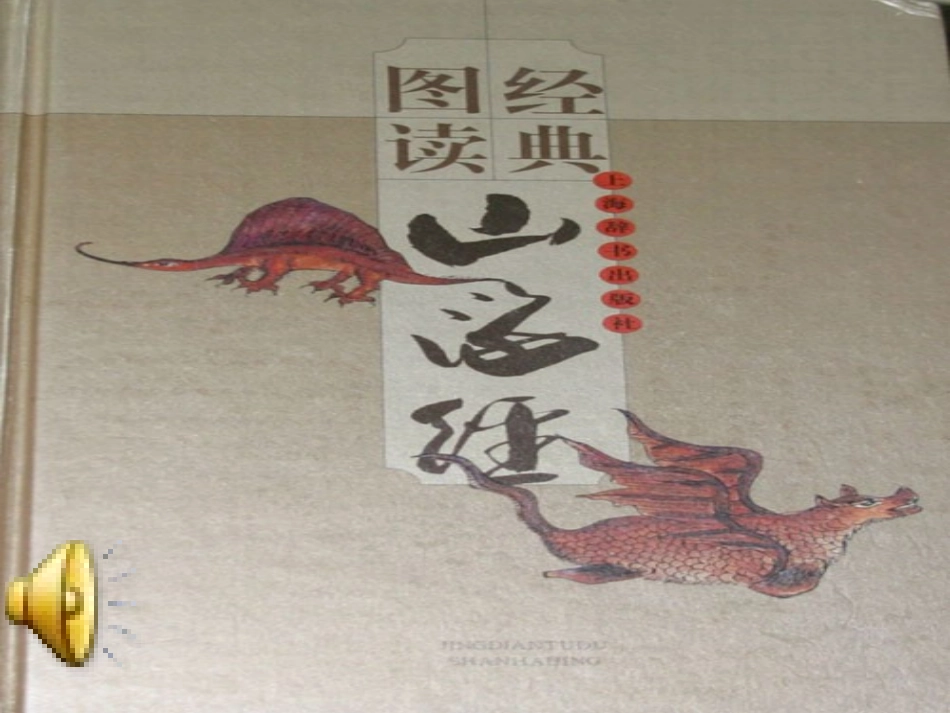 经典
图读
山海经
上海辞书出版社
JINGDIANTUDU
SHANHAIJING